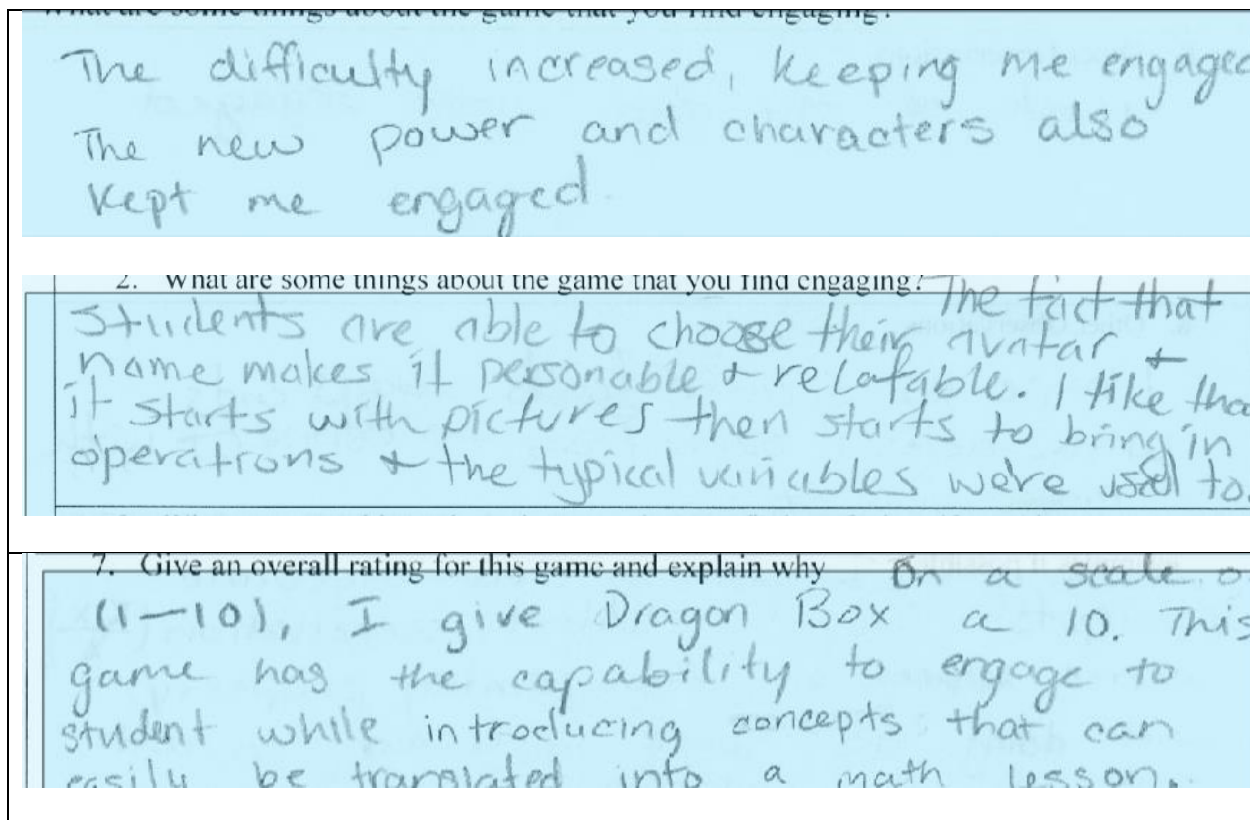 What are some things about the game that you find engaging?
The difficulty increased, keeping me engaged
The new power and characters also
kept me engaged.
2. What are some things about the game that you find engaging? The fact that
students are able to choose their avatar &
name makes it personable & relatable. I like tha
it starts with pictures then starts to bring in
operations & the typical variables we're used to.
7. Give an overall rating for this game and explain why On a scale o
(1-10), I give Dragon Box a 10. This
game has the capability to engage to
student while introducing concepts that can
easily be translated into a math lesson.